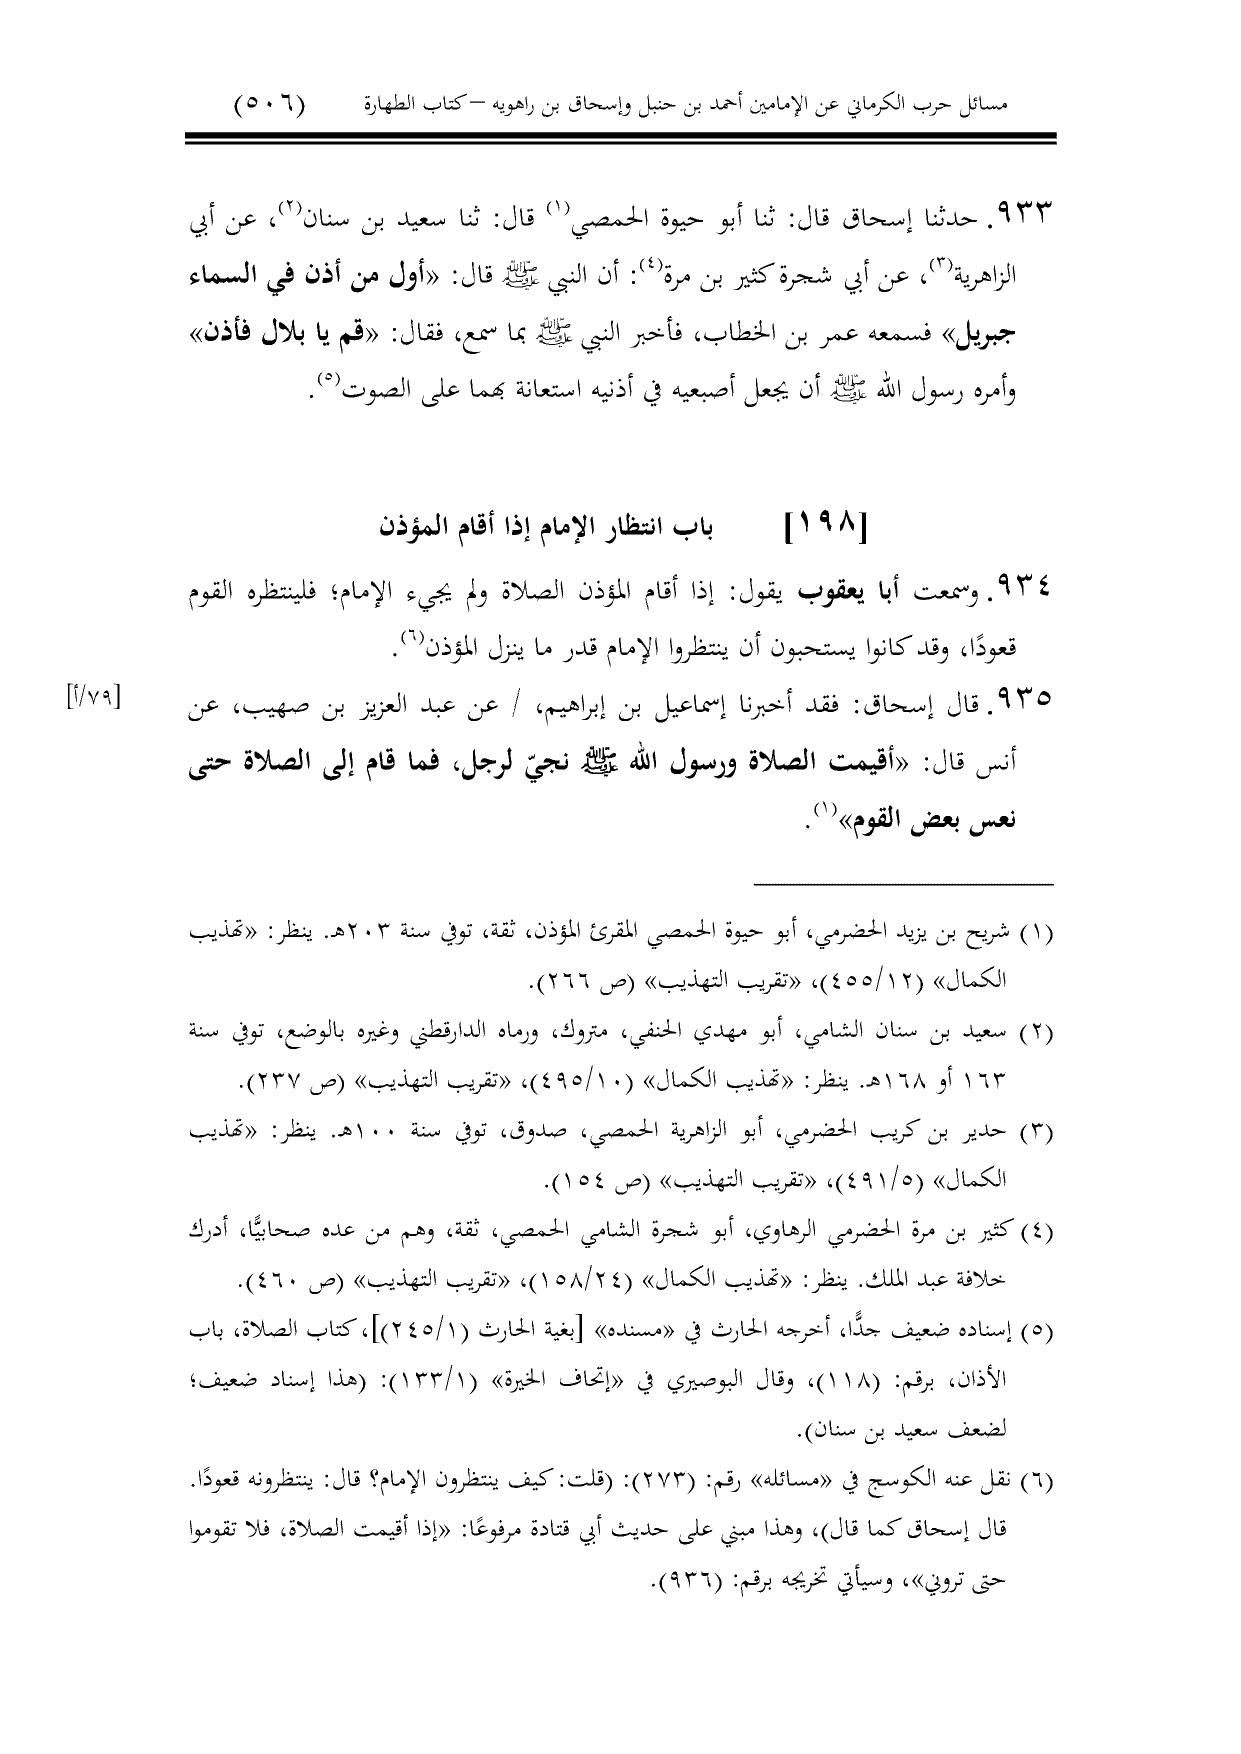 مسائل حرب الكرماني عن الإمامين أحمد بن حنبل وإسحاق بن راهويه – كتاب الطهارة (٥٠٦)
٩٣٣. حدثنا إسحاق قال: ثنا أبو حيوة الحمصي(١) قال: ثنا سعيد بن سنان(٢)، عن أبي
الزاهرية(٣)، عن أبي شجرة كثير بن مرة(٤): أن النبي ﷺ قال: «أول من أذن في السماء
جبريل» فسمعه عمر بن الخطاب، فأخبر النبي ﷺ بما سمع، فقال: «قم يا بلال فأذن»
وأمره رسول الله ﷺ أن يجعل أصبعيه في أذنيه استعانة بهما على الصوت(٥).
[١٩٨] باب انتظار الإمام إذا أقام المؤذن
٩٣٤. وسمعت أبا يعقوب يقول: إذا أقام المؤذن الصلاة ولم يجيء الإمام؛ فلينتظره القوم
قعودًا، وقد كانوا يستحبون أن ينتظروا الإمام قدر ما ينزل المؤذن(٦).
٩٣٥. قال إسحاق: فقد أخبرنا إسماعيل بن إبراهيم، / عن عبد العزيز بن صهيب، عن [٧٩/أ]
أنس قال: «أقيمت الصلاة ورسول الله ﷺ نجيّ لرجل، فما قام إلى الصلاة حتى
نعس بعض القوم»(١).
(١) شريح بن يزيد الحضرمي، أبو حيوة الحمصي المقرئ المؤذن، ثقة، توفي سنة ٢٠٣هـ. ينظر: «تهذيب
الكمال» (٤٥٥/١٢)، «تقريب التهذيب» (ص ٢٦٦).
(٢) سعيد بن سنان الشامي، أبو مهدي الحنفي، متروك، ورماه الدارقطني وغيره بالوضع، توفي سنة
١٦٣ أو ١٦٨هـ. ينظر: «تهذيب الكمال» (٤٩٥/١٠)، «تقريب التهذيب» (ص ٢٣٧).
(٣) حدير بن كريب الحضرمي، أبو الزاهرية الحمصي، صدوق، توفي سنة ١٠٠هـ. ينظر: «تهذيب
الكمال» (٤٩١/٥)، «تقريب التهذيب» (ص ١٥٤).
(٤) كثير بن مرة الحضرمي الرهاوي، أبو شجرة الشامي الحمصي، ثقة، وهم من عده صحابيًّا، أدرك
خلافة عبد الملك. ينظر: «تهذيب الكمال» (١٥٨/٢٤)، «تقريب التهذيب» (ص ٤٦٠).
(٥) إسناده ضعيف جدًّا، أخرجه الحارث في «مسنده» [بغية الحارث (٢٤٥/١)]، كتاب الصلاة، باب
الأذان، برقم: (١١٨)، وقال البوصيري في «إتحاف الخيرة» (١٣٣/١): (هذا إسناد ضعيف؛
لضعف سعيد بن سنان).
(٦) نقل عنه الكوسج في «مسائله» رقم: (٢٧٣): (قلت: كيف ينتظرون الإمام؟ قال: ينتظرونه قعودًا.
قال إسحاق كما قال)، وهذا مبني على حديث أبي قتادة مرفوعًا: «إذا أقيمت الصلاة، فلا تقوموا
حتى تروني»، وسيأتي تخريجه برقم: (٩٣٦).